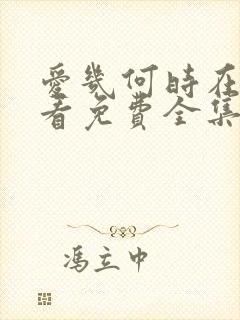 愛幾何時在
看免費全集
馮立中